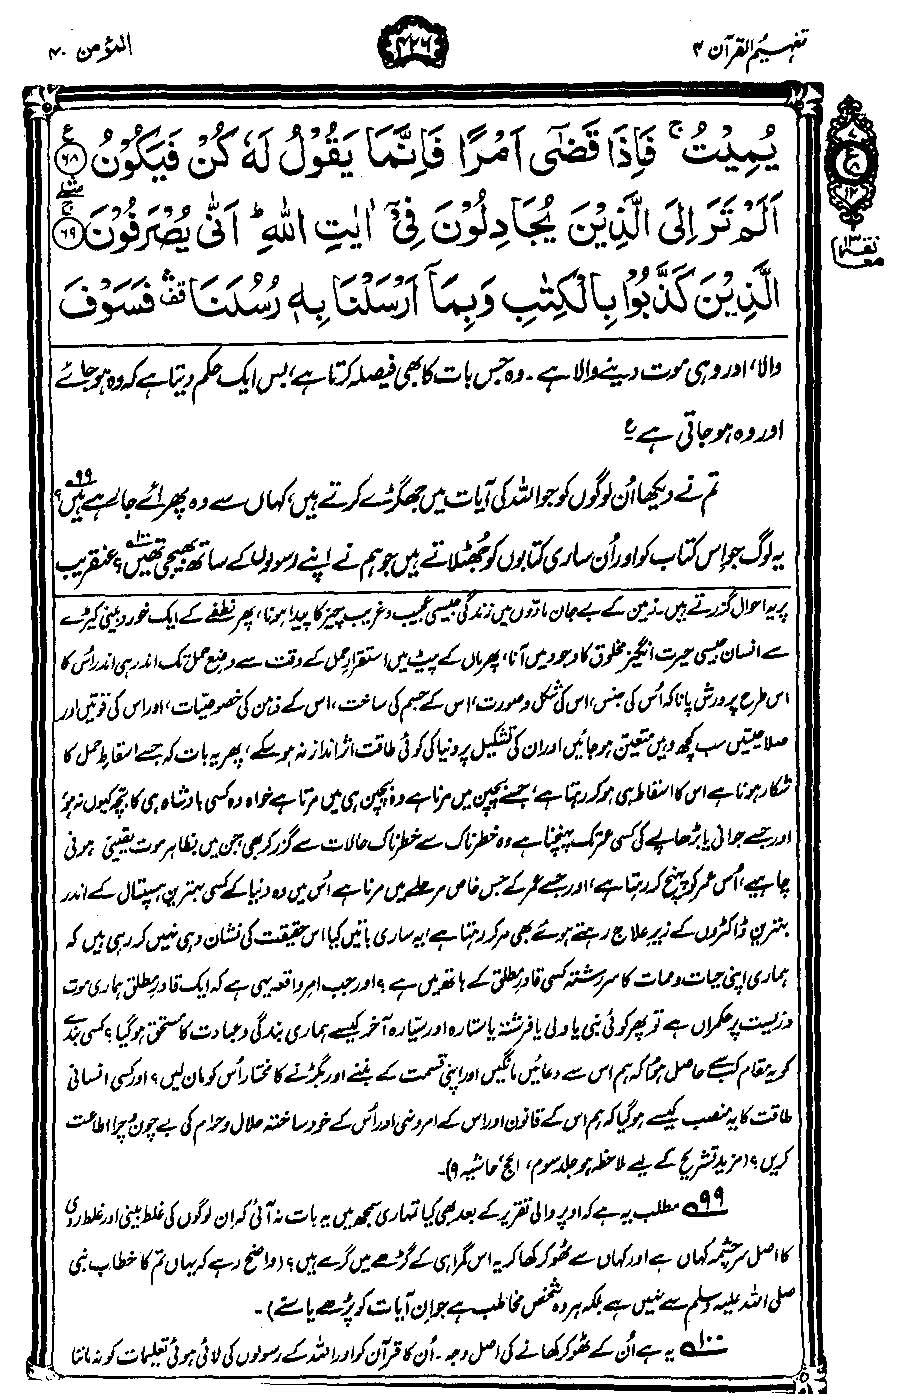 تفہیم القرآن ۴
۴۲۶
المؤمن ۴۰
يُمِيْتُ ۚ فَاِذَا قَضٰٓى اَمْرًا فَاِنَّمَا يَقُوْلُ لَهٗ كُنْ فَيَكُوْنُ ۶۸ ع
اَلَمْ تَرَ اِلَى الَّذِيْنَ يُجَادِلُوْنَ فِيْٓ اٰيٰتِ اللّٰهِ ؕ اَنّٰى يُصْرَفُوْنَ ۶۹
الَّذِيْنَ كَذَّبُوْا بِالْكِتٰبِ وَبِمَآ اَرْسَلْنَا بِهٖ رُسُلَنَا ۛ فَسَوْفَ
والا، اور وہی موت دینے والا ہے۔ وہ جس بات کا بھی فیصلہ کرتا ہے، بس ایک حکم دیتا ہے کہ وہ ہو جائے
اور وہ ہو جاتی ہے ع
تم نے دیکھا اُن لوگوں کو جو اللہ کی آیات میں جھگڑے کرتے ہیں، کہاں سے وہ پھرائے جا رہے ہیں؟ ۹۹
یہ لوگ جو اِس کتاب کو اور اُن ساری کتابوں کو جھٹلاتے ہیں جو ہم نے اپنے رسولوں کے ساتھ بھیجی تھیں؟ ۱۰۰ عنقریب
پر یہ احوال گزرتے ہیں۔ زمین کے بے جان مادّوں میں زندگی جیسی عجیب و غریب چیز کا پیدا ہونا، پھر نطفے کے ایک خوردبینی کیڑے
سے انسان جیسی حیرت انگیز مخلوق کا وجود میں آنا، پھر ماں کے پیٹ میں استقرارِ حمل کے وقت سے وضعِ حمل تک اندر ہی اندر اس کا
اس طرح پرورش پانا کہ اُس کی جنس، اس کی شکل و صورت، اس کے جسم کی ساخت، اس کے ذہن کی خصوصیّات، اور اس کی قوتیں اور
صلاحیتیں سب کچھ وہیں متعین ہو جائیں اور ان کی تشکیل پر دنیا کی کوئی طاقت اثر انداز نہ ہو سکے، پھر یہ بات کہ جسے اسقاطِ حمل کا
شکار ہونا ہے اس کا اسقاط ہی ہو کر رہتا ہے، جسے بچپن میں مرنا ہے وہ بچپن ہی میں مرتا ہے خواہ وہ کسی بادشاہ ہی کا بچہ کیوں نہ ہو
اور جسے جوانی یا بڑھاپے کی کسی عمر تک پہنچنا ہے وہ خطرناک سے خطرناک حالات سے گزر کر بھی جن میں بظاہر موت یقینی ہونی
چاہیے، اُس عمر کو پہنچ کر رہتا ہے، اور جسے عمر کے جس خاص مرحلے میں مرنا ہے اُس میں وہ دنیا کے کسی بہترین ہسپتال کے اندر
بہترین ڈاکٹروں کے زیرِ علاج رہتے ہوئے بھی مر کر رہتا ہے، یہ ساری باتیں کیا اس حقیقت کی نشان دہی نہیں کر رہی ہیں کہ
ہماری اپنی حیات و ممات کا سررشتہ کسی قادرِ مطلق کے ہاتھ میں ہے؟ اور جب امرِ واقعہ یہی ہے کہ ایک قادرِ مطلق ہماری موت
و زیست پر حکمراں ہے تو پھر کوئی نبی یا ولی یا فرشتہ یا ستارہ اور سیّارہ آخر کیسے ہماری بندگی و عبادت کا مستحق ہو گیا؟ کسی بندے
کو یہ مقام کب سے حاصل ہوا کہ ہم اس سے دعائیں مانگیں اور اپنی قسمت کے بننے اور بگڑنے کا مختار اُس کو مان لیں؟ اور کسی انسانی
طاقت کا یہ منصب کیسے ہو گیا کہ ہم اس کے قانون اور اس کے امر و نہی اور اُس کے خود ساختہ حلال و حرام کی بے چون و چرا اطاعت
کریں؟ (مزید تشریح کے لیے ملاحظہ ہو جلد سوم، الحج، حاشیہ ۹)۔
۹۹ مطلب یہ ہے کہ اوپر والی تقریر کے بعد بھی کیا تمہاری سمجھ میں یہ بات نہ آئی کہ ان لوگوں کی غلط بینی اور غلط روی
کا اصل سرچشمہ کہاں ہے اور کہاں سے ٹھوکر کھا کر یہ اس گمراہی کے گڑھے میں گرے ہیں؟ (واضح رہے کہ یہاں تم کا خطاب نبی
صلی اللہ علیہ وسلم سے نہیں ہے بلکہ ہر وہ شخص مخاطب ہے جو ان آیات کو پڑھے یا سنے)۔
۱۰۰ یہ ہے اُن کے ٹھوکر کھانے کی اصل وجہ۔ اُن کا قرآن کو اور اللہ کے رسولوں کی لائی ہوئی تعلیمات کو نہ ماننا